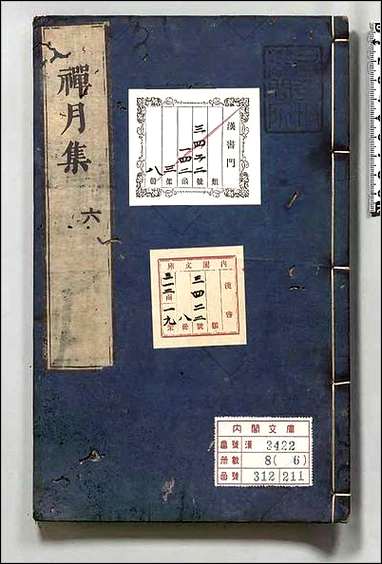 禪月集
六
漢書門
類
三四二二
號
一四二
函
三
架
八
冊
內閣文庫
漢書
類
三四二二
號
八
冊
三一二
函
一九
架
內閣文庫
番號 漢 3422
冊數 8( 6)
函號 312 211